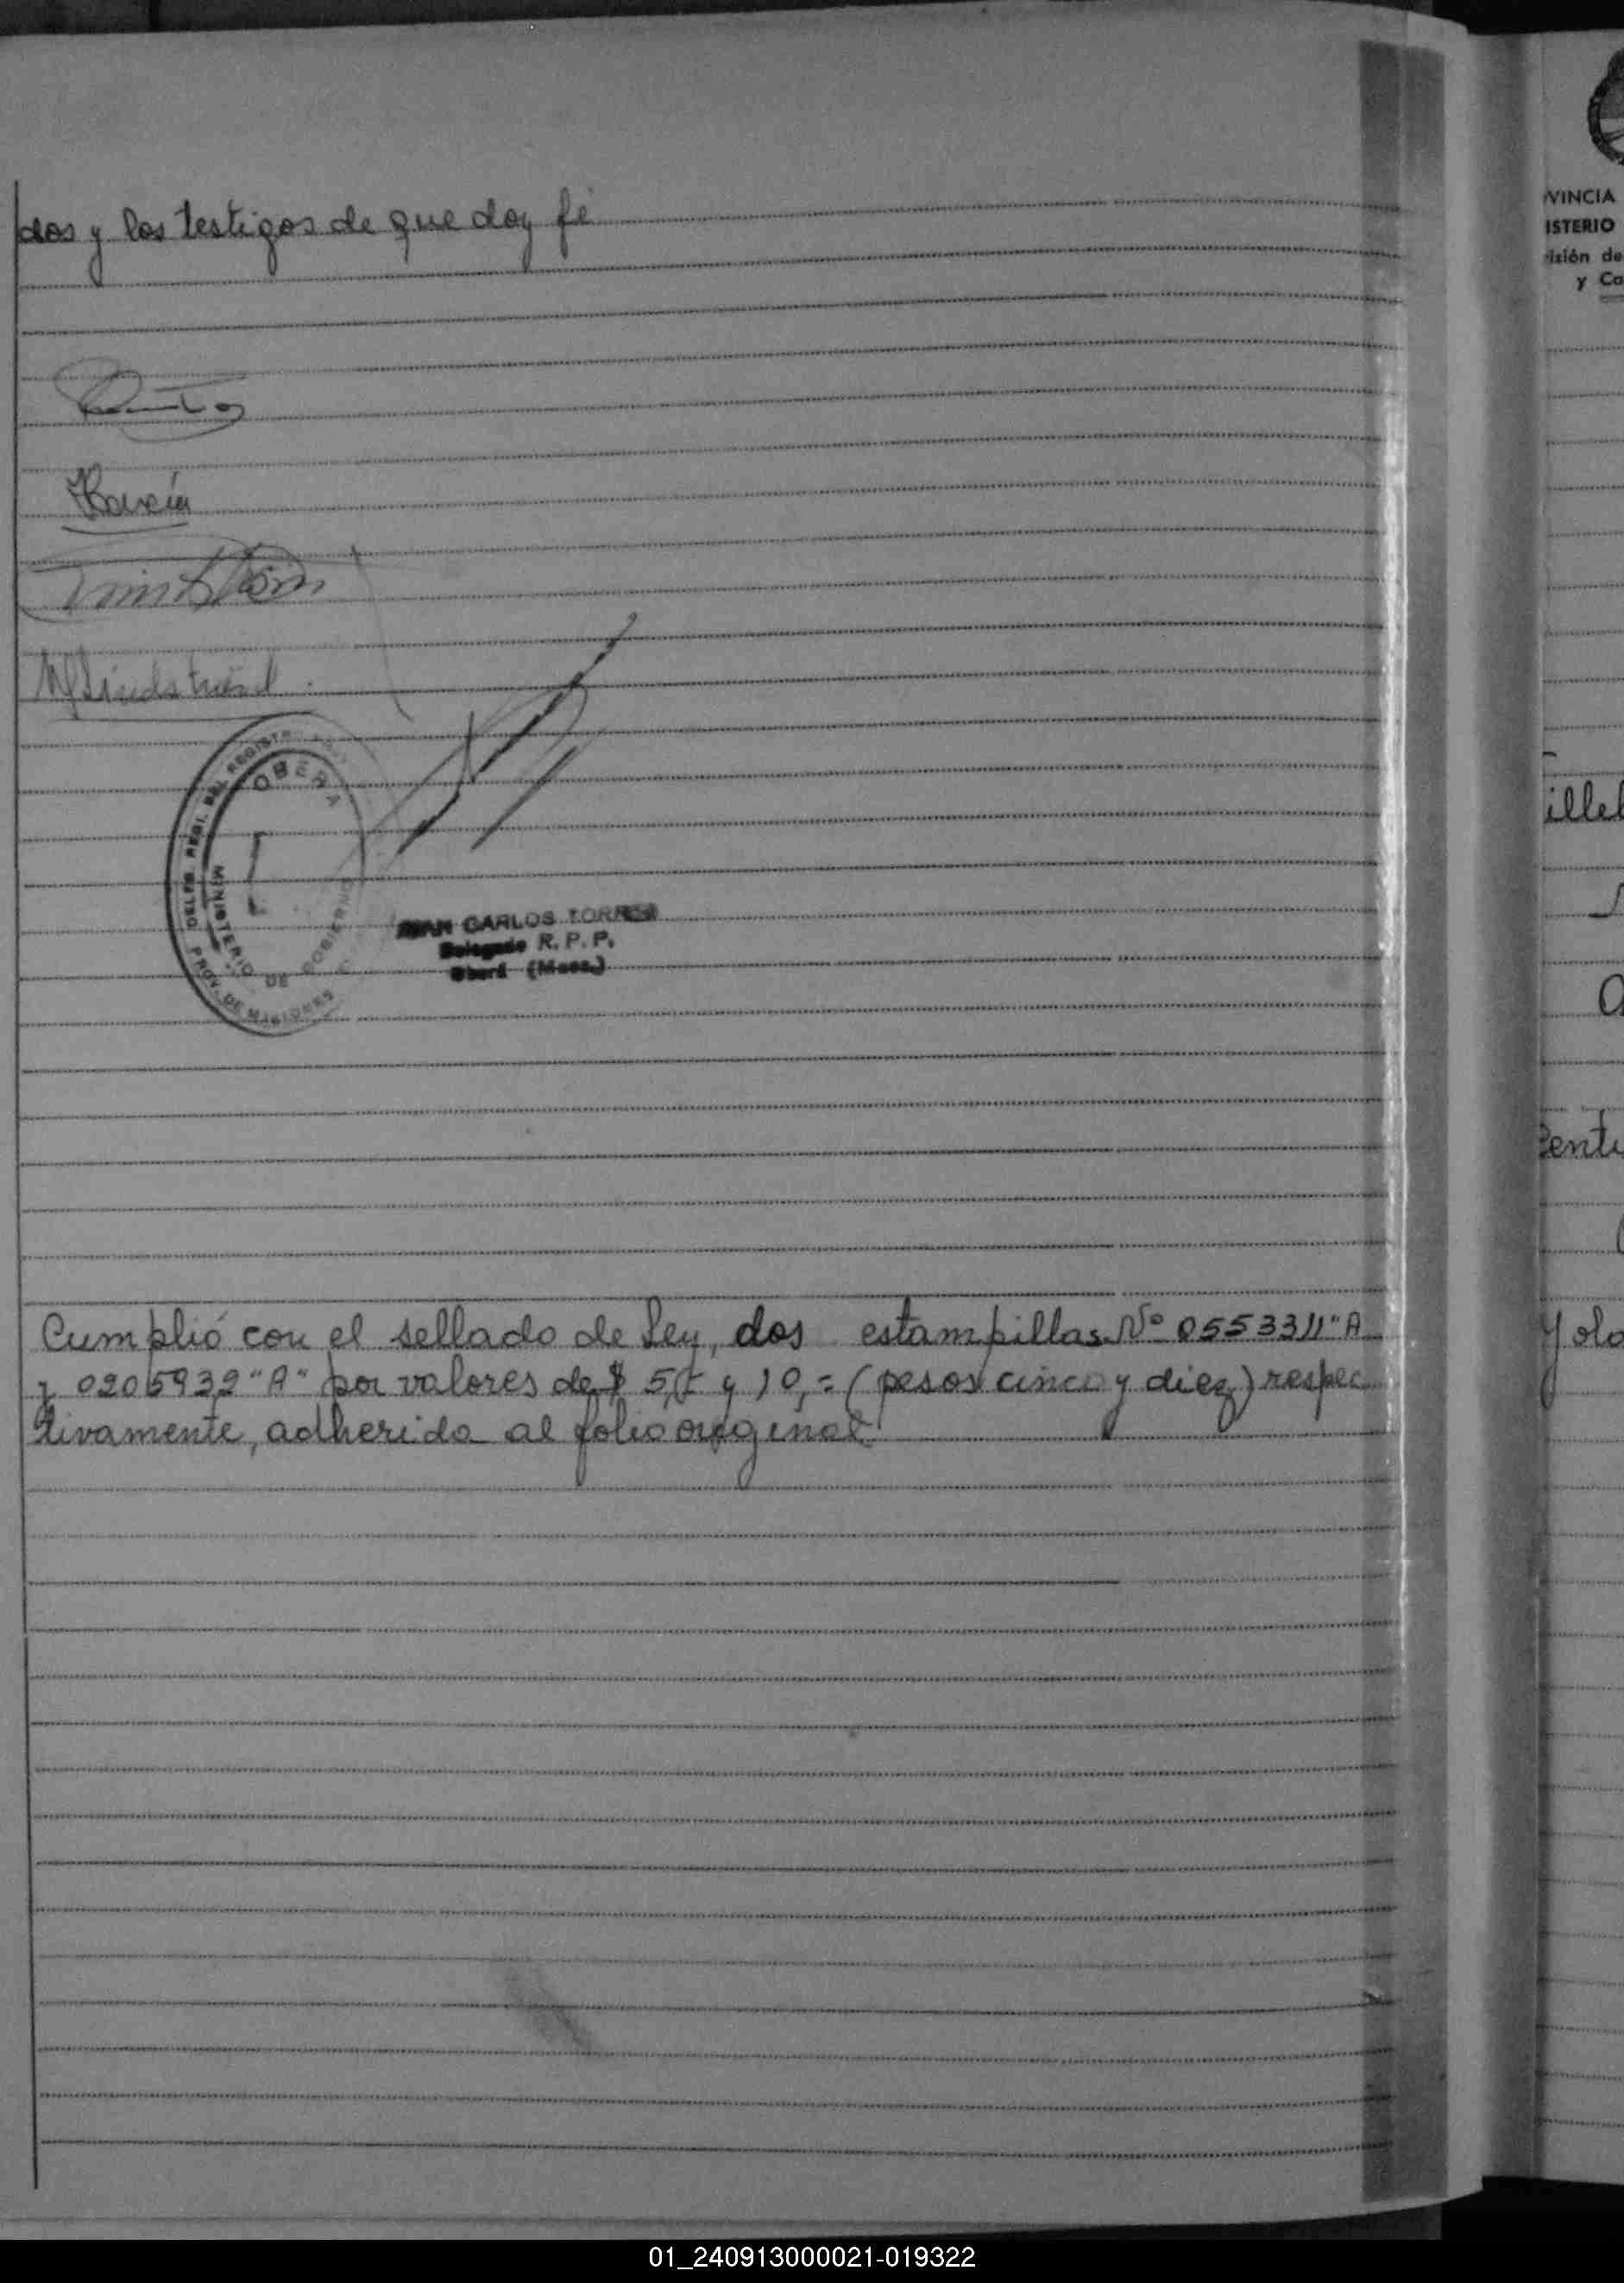 dos y los testigos de que doy fé
OBERA
MINISTERIO DE GOBIERNO
PROV. DE MISIONES
JUAN CARLOS TORRES
Delegado R. P. P.
Oberá (Mnes.)
Cumplió con el sellado de Ley, dos estampillas Nº 0553311"A
y 0205939"A" por valores de $ 5,- y 10,= (pesos cinco y diez) respec
tivamente, adherida al folio original
VINCIA
ISTERIO
isión de
y Co
01_240913000021-019322